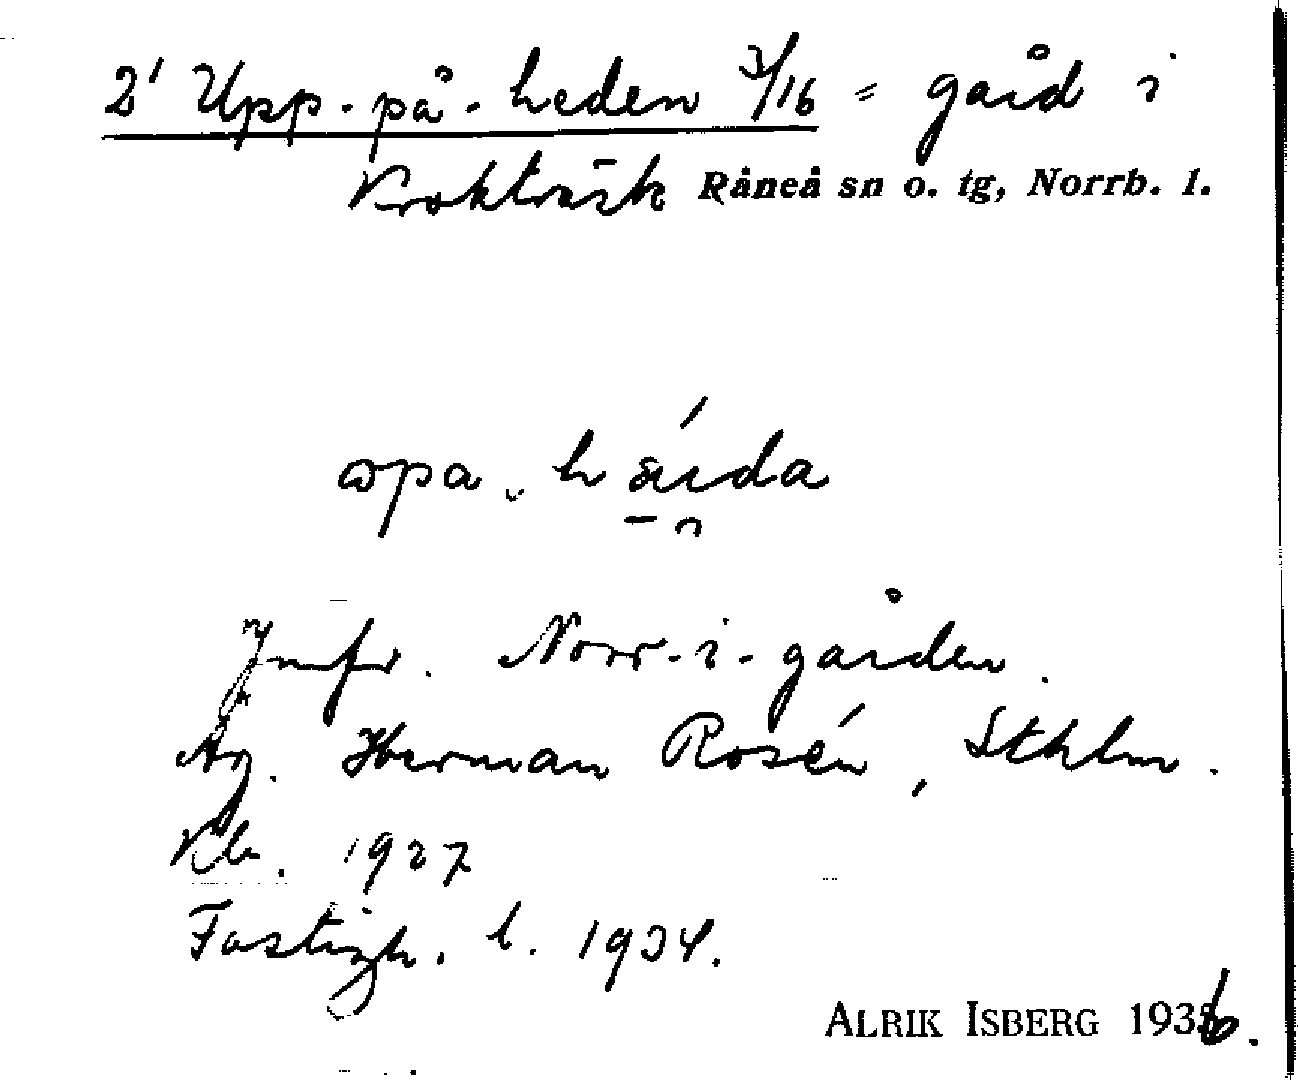 2¹ Upp-på-heden 3/16 = gård i
Krokträsk Råneå sn o. tg, Norrb. l.
Jmfr. Norr-i-gården.
Äg. Herman Rosén, Sthlm.
Kb. 1927
Fastigh. l. 1934.
ALRIK ISBERG 1936.